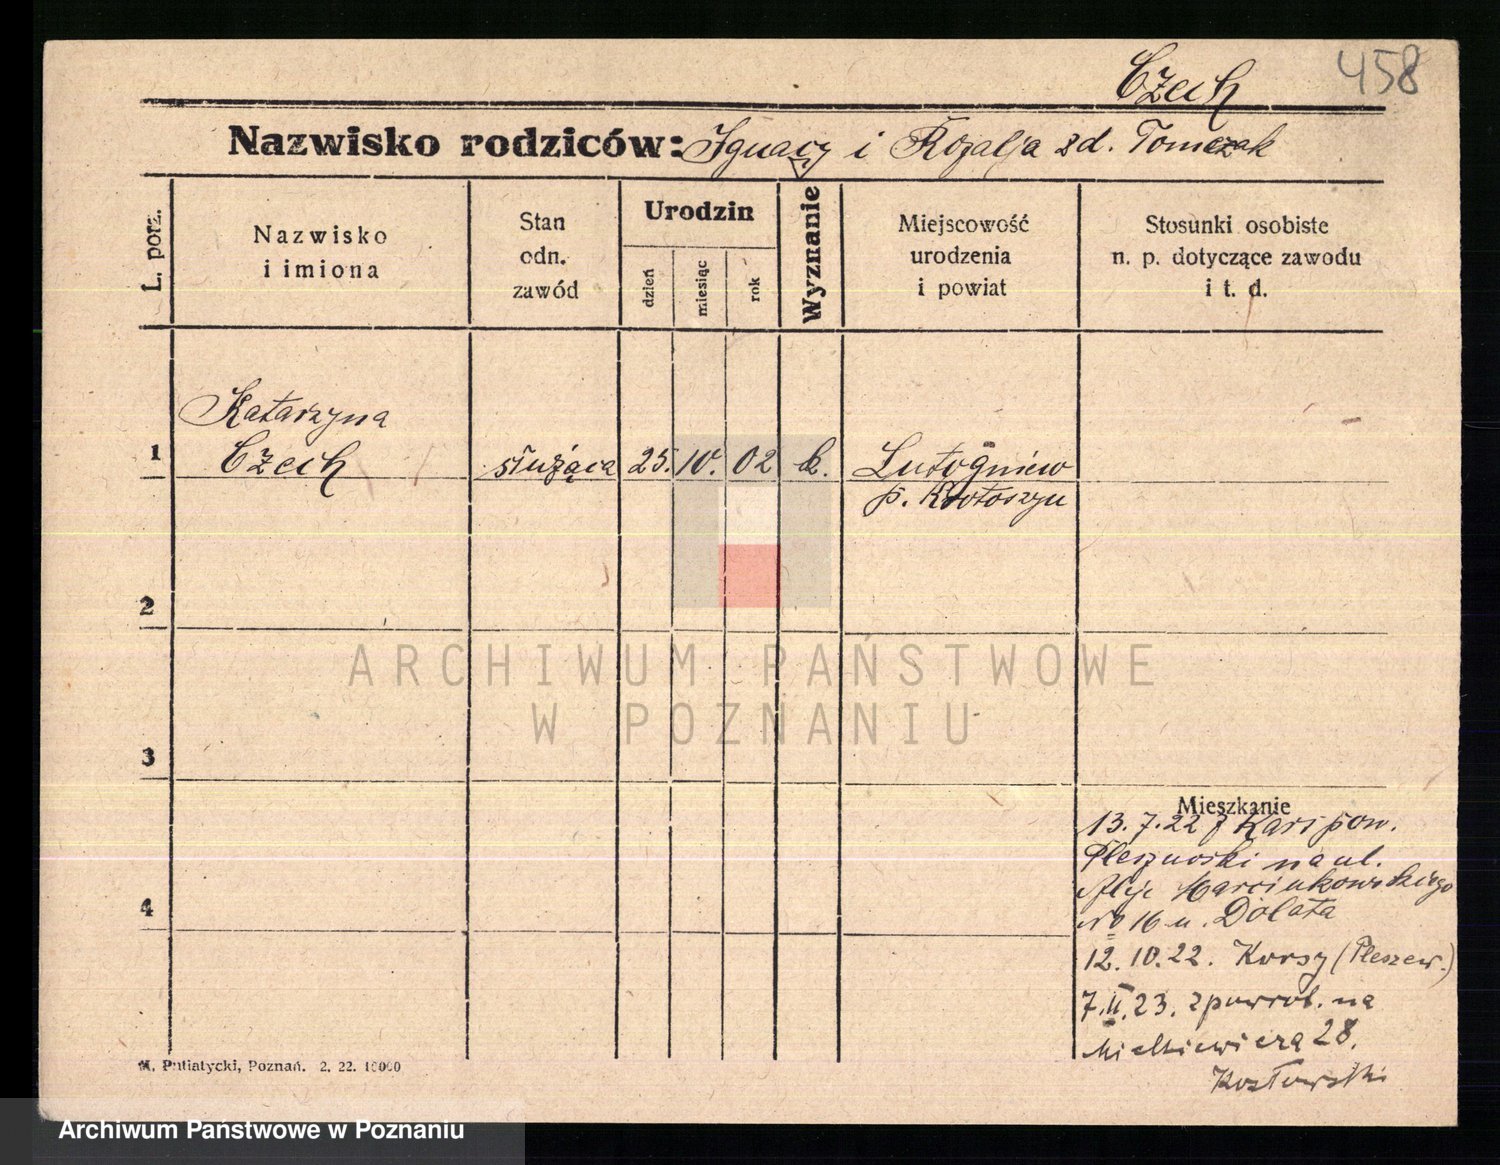 Czech
458
Nazwisko rodziców: Ignacy i Rozalja zd. Tomczak
L. porz.
Nazwisko
i imiona
Stan
odn.
zawód
Urodzin
dzień
miesiąc
rok
Wyznanie
Miejscowość
urodzenia
i powiat
Stosunki osobiste
n. p. dotyczące zawodu
i t. d.
1
Katarzyna
Czech
służąca
25. 10. 02
k.
Lutogniew
p. Krotoszyn
2
3
4
Mieszkanie
13. 7. 22 z Karspow.
Pleszewski na ul.
Aleje Marcinkowskiego
No 16 u. Dolata
12. 10. 22. Korsy (Pleszew.)
7. II. 23. zpowrot. na
Mickiewicza 28.
Kozłowski
M. Putiatycki, Poznań. 2. 22. 10000
ARCHIWUM PAŃSTWOWE
W POZNANIU
Archiwum Państwowe w Poznaniu